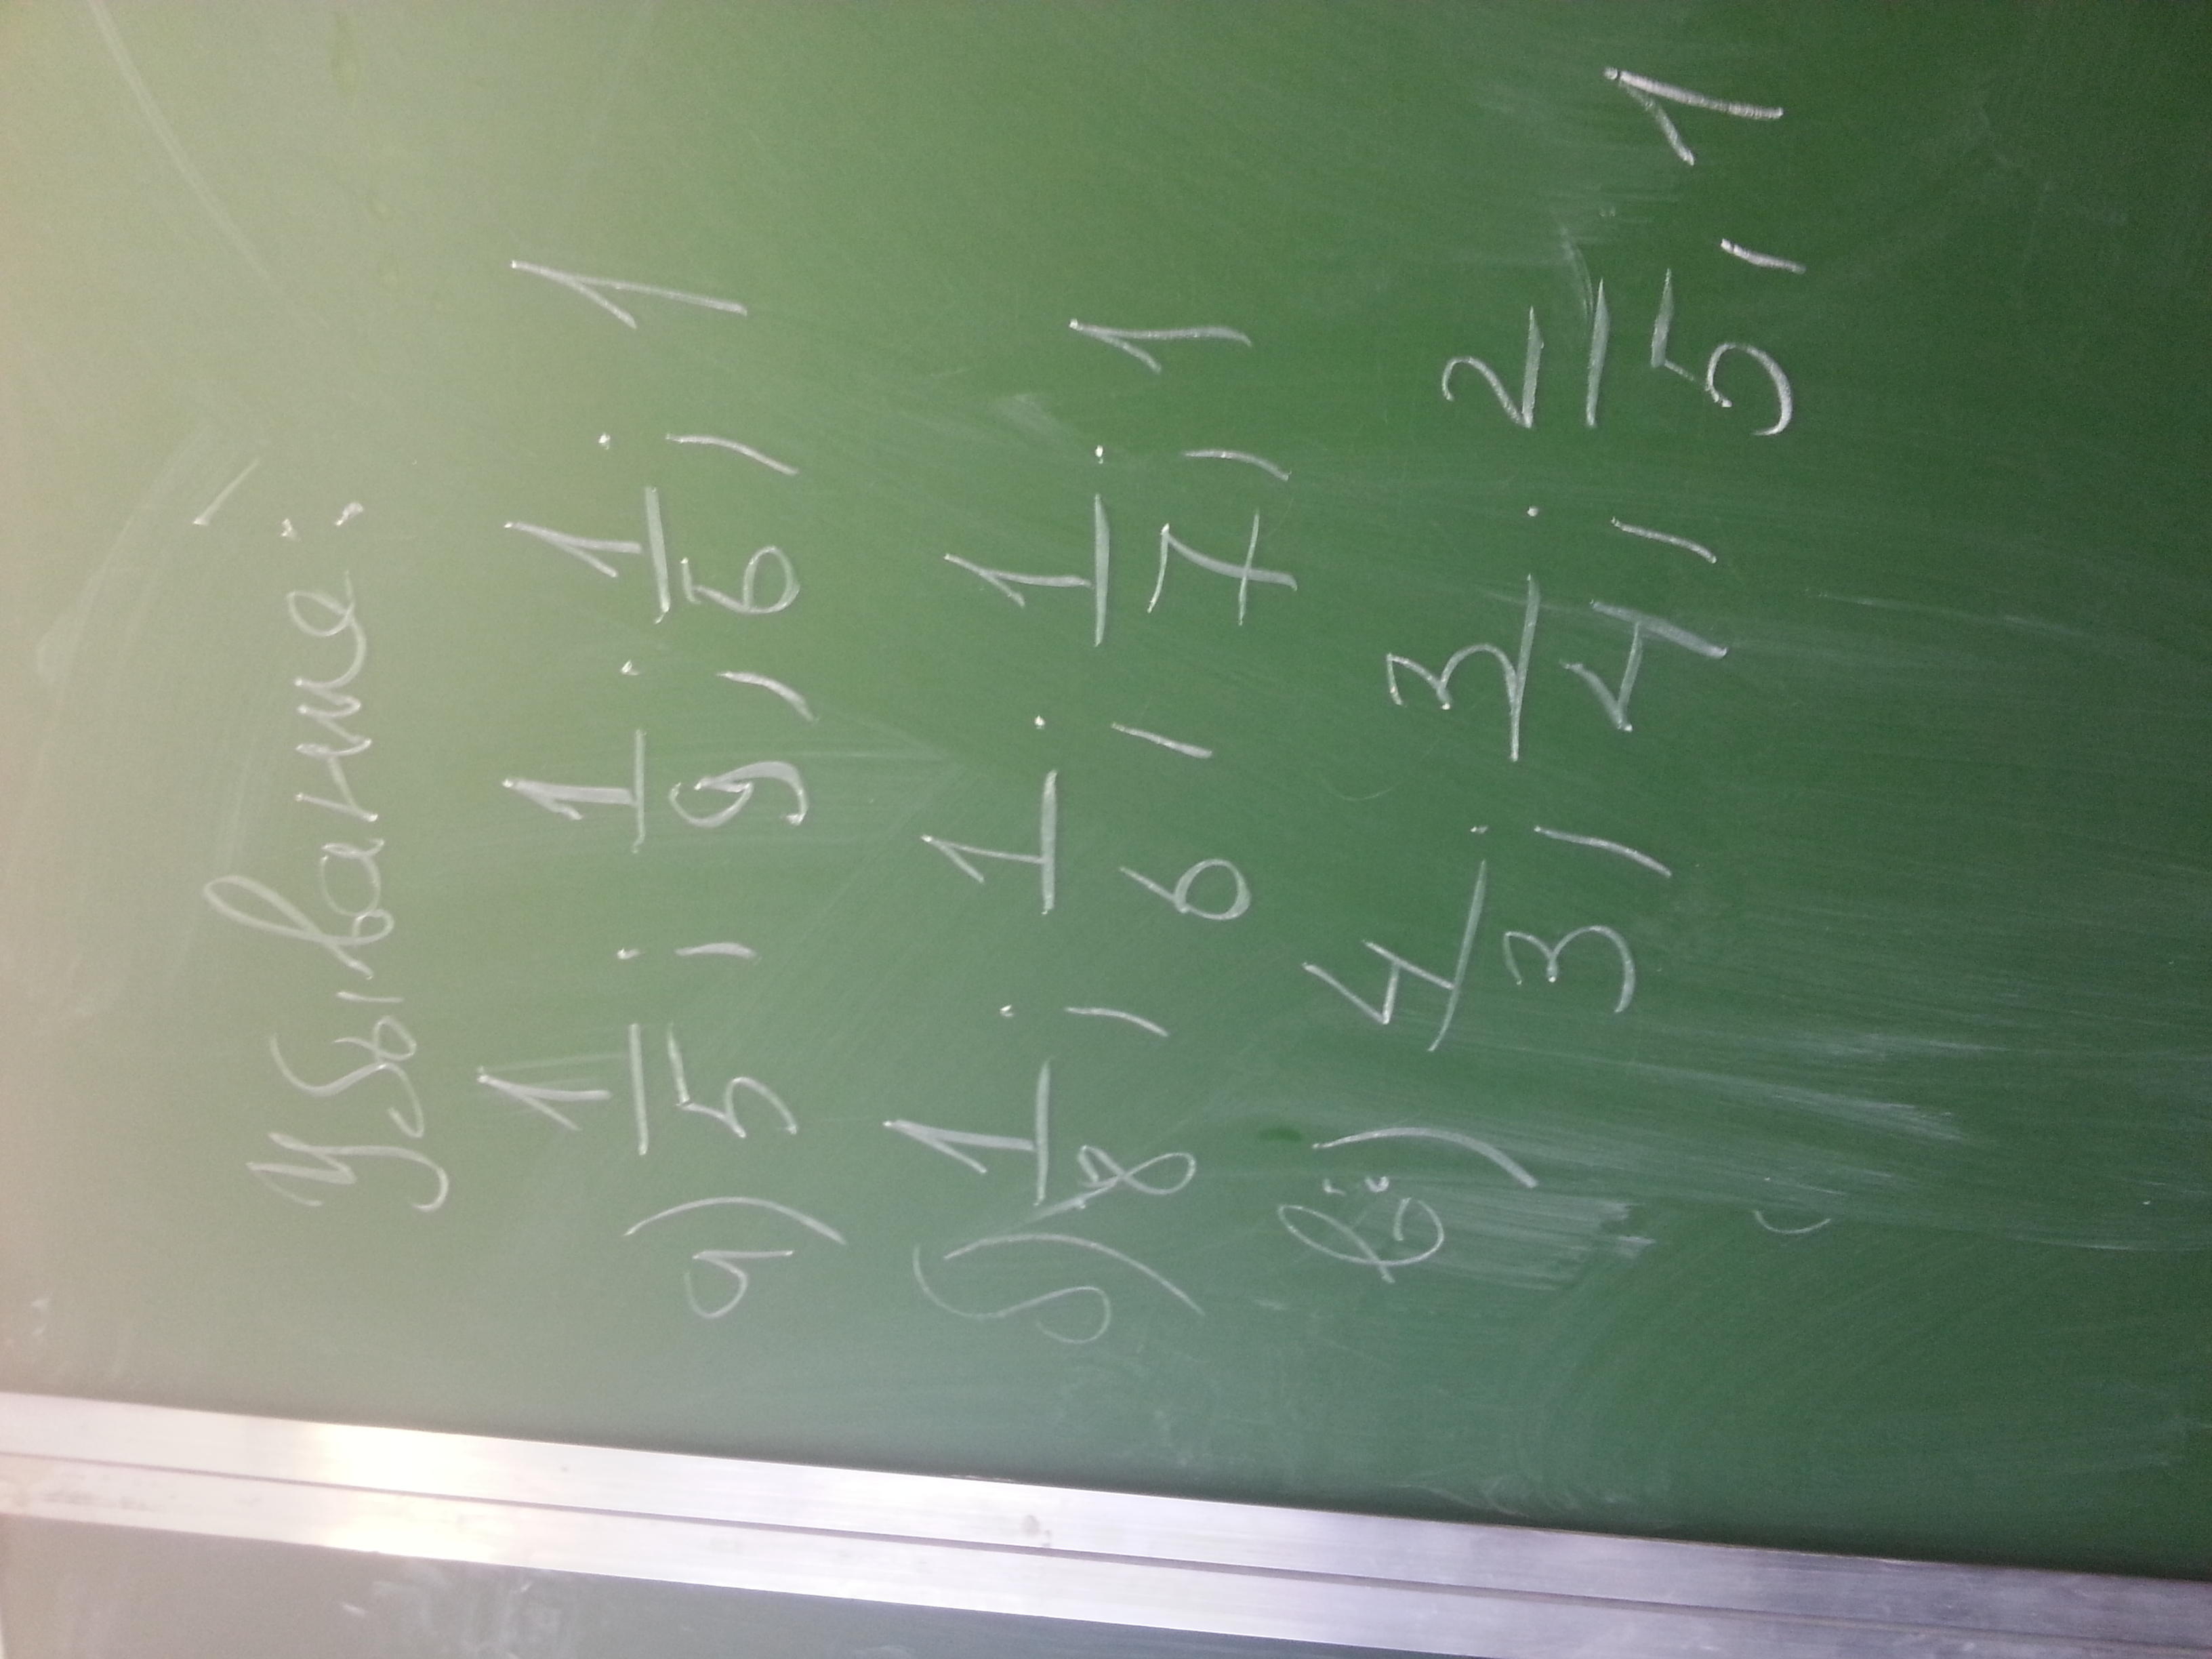 Убывание:
а) 1/5; 1/9; 1/6; 1
б) 1/8; 1/6; 1/7; 1
в) 4/3; 3/4; 2/5, 1